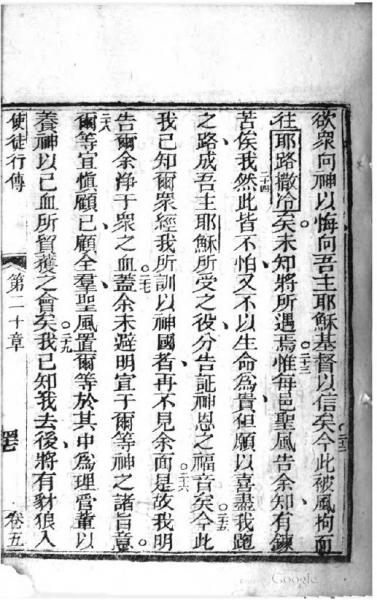 欲衆向神以悔向吾主耶穌基督以信矣今此被風拘面
二二
往耶路撒冷矣未知將所遇焉惟每邑聖風告余知有鍊
二三
苦俟我然此皆不怕又不以生命為貴但願以喜盡我跑
二四
之路成吾主耶穌所受之役分告証神恩之福音矣今此
二五
我已知爾衆經我所訓以神國者再不見余面是故我明
二六
告爾余浄于衆之血蓋余未避明宣于爾等神之諸旨意
二七
爾等宜慎顧已顧全羣聖風置爾等於其中為理管董以
二八
養神以己血所買獲之會矣我已知我去後將有豺狼入
二九
使徒行傳
第二十章
卷五
Google